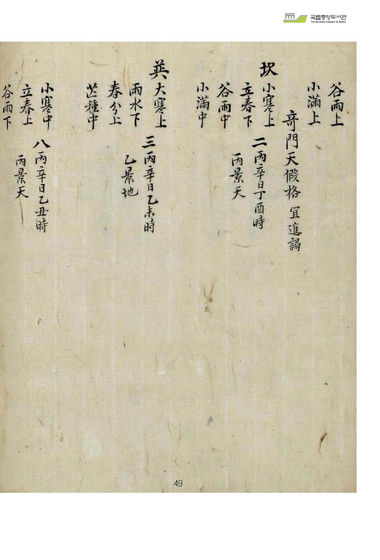 국립중앙도서관
谷雨上
小滿上
奇門天假格 宜進謁
坎 小寒上
立春下 二 丙辛日丁酉時
谷雨中 丙景天
小滿中
英 大寒上
雨水下 三 丙辛日乙未時
春分上 乙景地
芒種中
小寒中
立春上 八 丙辛日乙丑時
谷雨下 丙景天
49